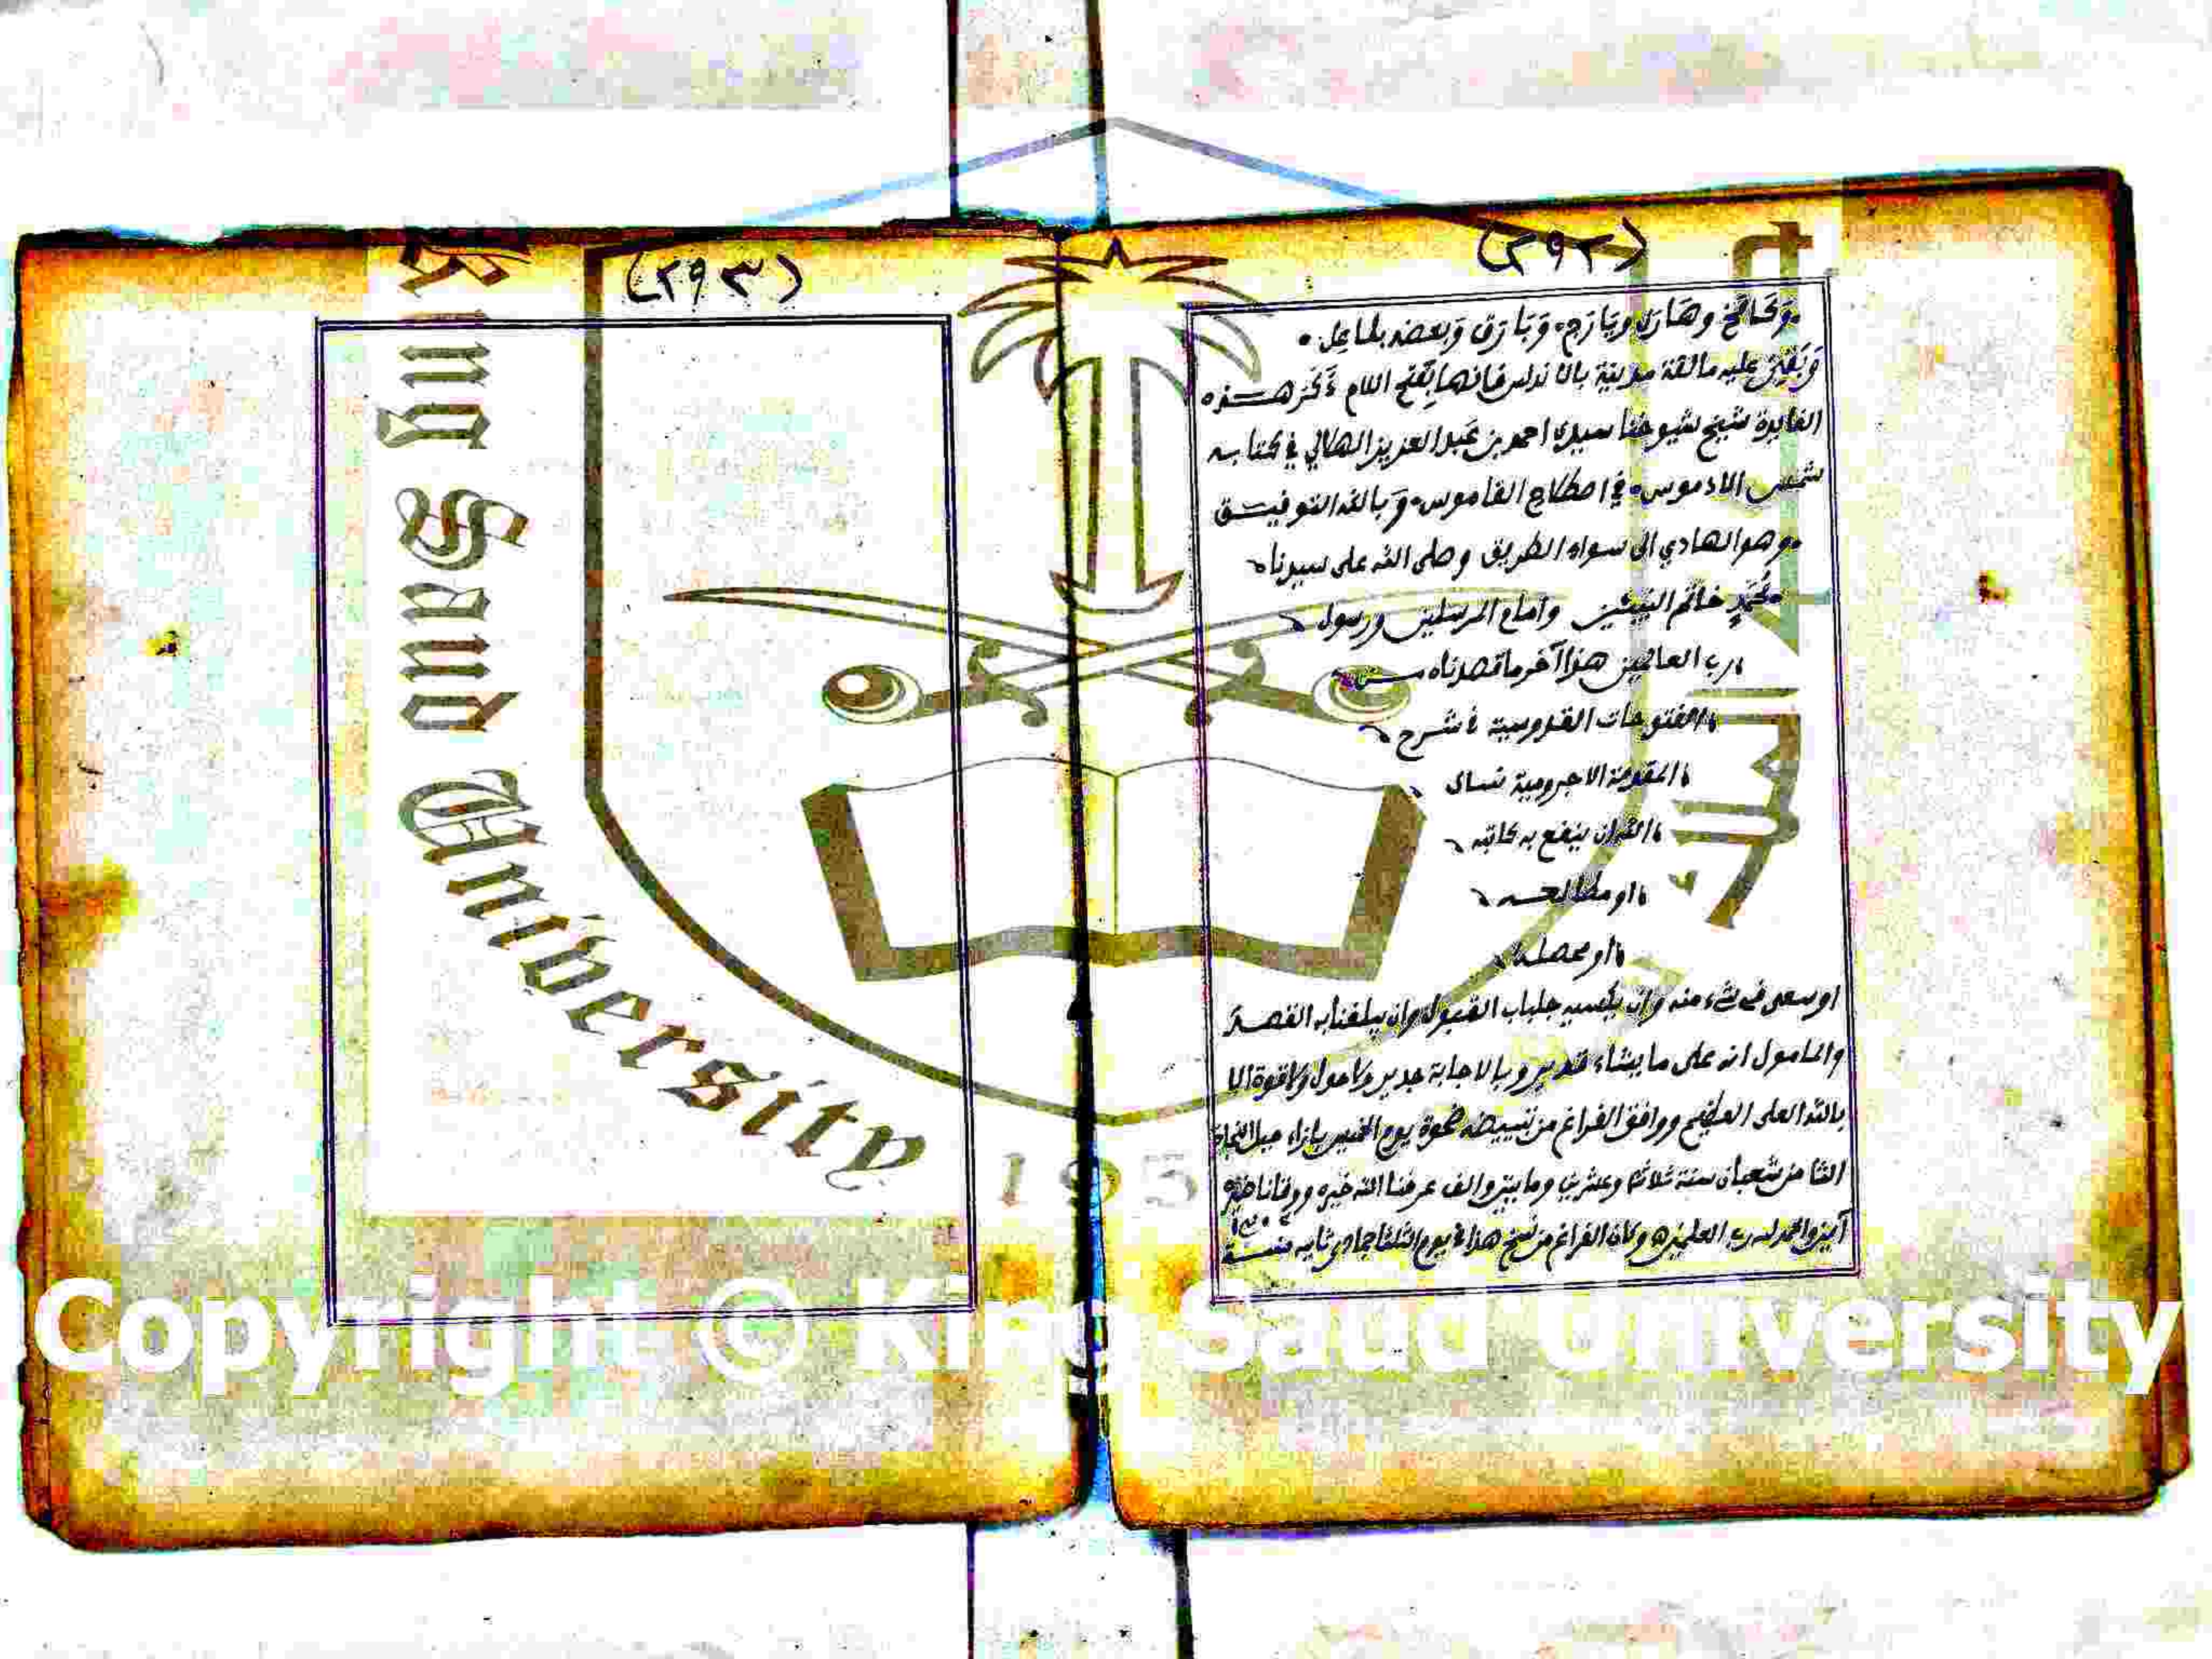 (٢٩٢)
وبعضه بلماعل.
وبقي عليه مالقة مدينة بالاندلس فانها بفتح اللام ذكر هـذه
الفايدة شيخ شيوخنا سيدي احمد بن عبد العزيز الهلالي في كتابـه
الادموس في اصطلاح القاموس وبالله التوفيـق
وهو الهادي الى سواء الطريق وصلى الله على سيدنا
محمد خاتم النبيئين وامام المرسلين ورسول
رب العالمين هذا آخر ما قصدناه مـن
الفتوحات القدوسية في شـرح
المقدمة الاجرومية نسال
الله ان ينفع به كاتبه
او مطالعـه
او محصله
او سعى في شيء منه وان يكسيه جلباب القبول وان يبلغنا به القصـد
والمامول انه على ما يشاء قدير وبالاجابة جدير ولا حول ولا قوة الا
بالله العلي العظيم ووافق الفراغ من تبييضه ضحوة يوم الخميس بازاء جبل
الثامن شعبان سنة ثلاثة وعشرين ومايتين والف عرفنا الله خيره ووقانا ضيره
آمين والحمد لله رب العلمين وكان الفراغ من نسخ هذا في يوم الثلثا جمادي ثانيه سنـة
(٢٩٣)
King Saud University
195
Copyright © King Saud University